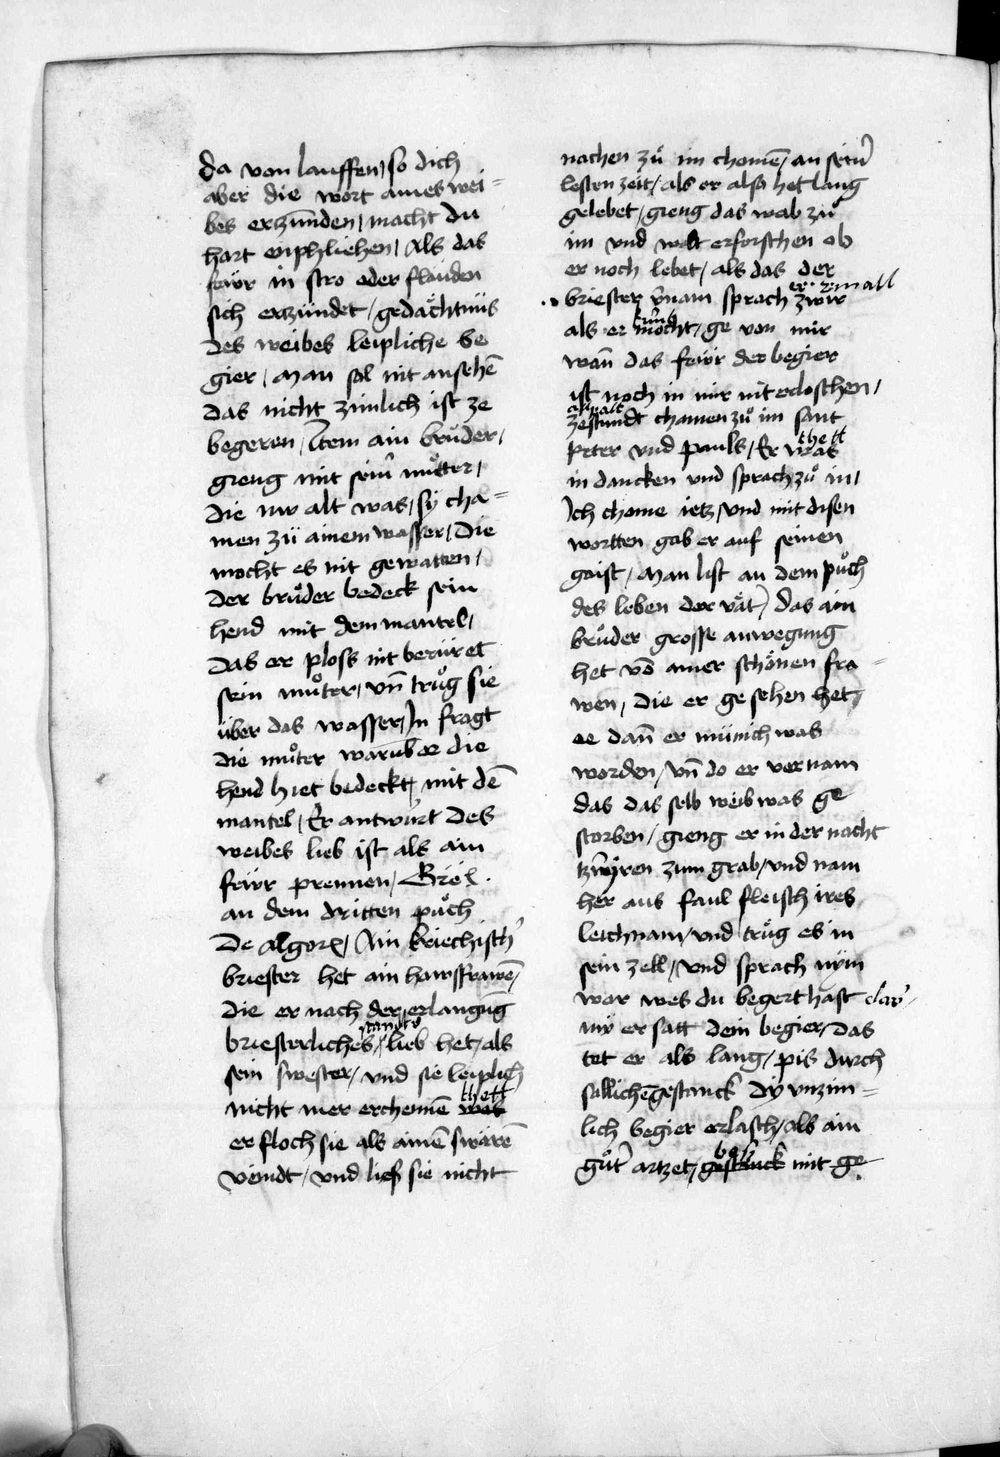 da von lauffen / so dich
aber die wort aines wei=
bes erzünden / macht du
hart enphliehen / Als das
fewr in stro oder fläuden
sich erzündet / gedächtnüs
des weibes leipliche be
gier / Man sol nit ansehē
das nicht zimlich ist ze
begeren / Item ain brůder /
gieng mit seīr můtter /
die nw alt was / sy cha=
men zü ainem wasser / Die
mocht es nit gewatten /
Der brůder bedeck sein
hend mit dem mantel /
Das er ploss nit berüret
sein můter / vn̄ trůg sie
über das wasser / In fragt
die můter warūb er die
hend hiet bedeckt / mit dē
mantel / Er antwürt Des
weibes lieb ist als ain
fewr prennen / Gregͦ.
an dem dritten půch
De algorꝫ / Ain kriechischͬ
briester het ain hawsfrawē /
die er nach der erlangūg
standes
briesterliches / lieb het / als
sein swester / vnd sie leiplich
thett
nicht mer erchennē was
er floch sie als ainē swärē
veindt / vnd lies sie nicht
nachen zů im chomē / an seinͬ
lesten zeit / als er also het lang
gelebet / gieng das weib zů
im vnd wolt erforschen ob
er noch lebet / als das der
er zmall
briester v̄nam sprach zwir
kund
als er mocht / ge von mir
wan̄ das fewr der begier
ist noch in mir nit erloschen /
alspalt
zestundt chamen zů im sant
thett
Peter vnd Pauls / Er was
in dancken vnd sprach zů in /
Ich chome ietz / vnd mit disen
wortten gab er auf seinen
gaist / Man list an dem půch
des leben der vät / Das ain
brůder grosse anwegung
het vō ainer schönen fra=
wen / die er gesehen het /
ee dan̄ er münich was
worden / vn̄ do er vernam
das das selb weib was ge
storben / gieng er in der nacht
zum grab / vnd nam
her aus faul fleisch ires
leichnam / vnd trůg es in
sein zell / vnd sprach nym
war wes du begert hast
nw er satt dein begier / Das
tet er als lang / pis durch
söllichē gestanck dy vnzim=
lich begier erlasch / als ain
gůtͬ artzet / mit ge